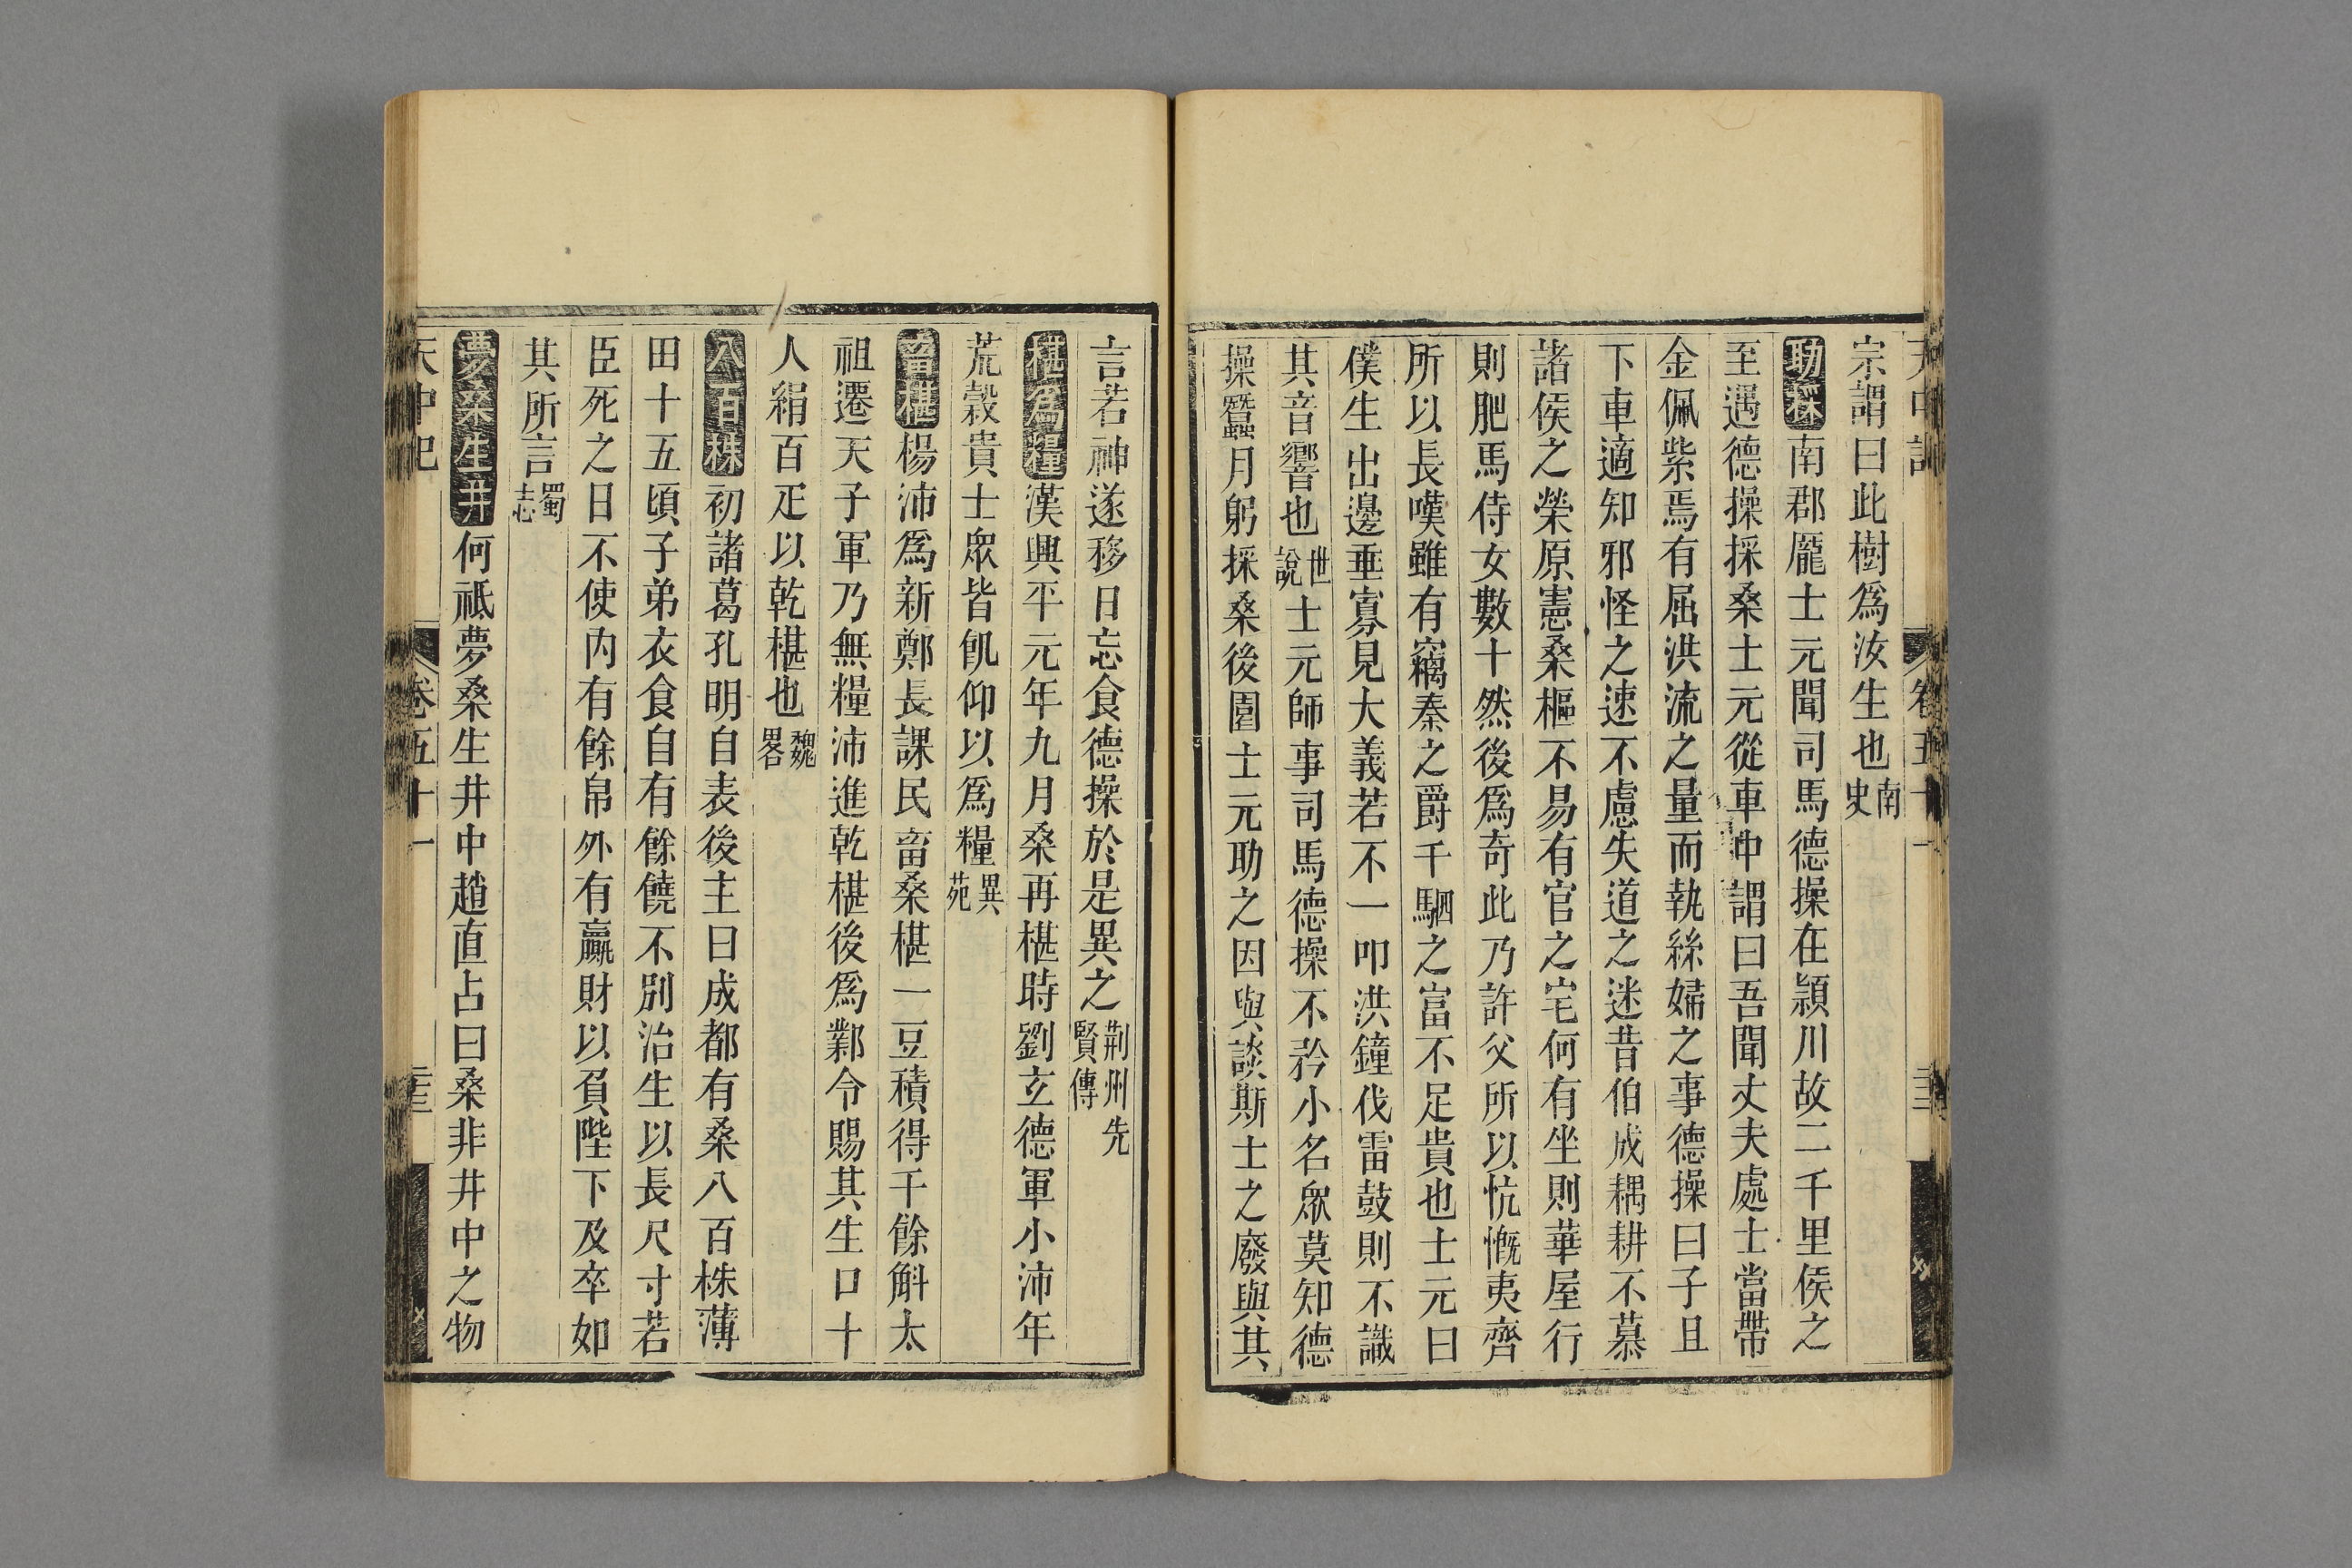 天中記 卷五十一
宗謂曰此樹爲汝生也南史
助採南郡龎士元聞司馬德操在潁川故二千里侯之
至遇德操採桑士元從車中謂曰吾聞丈夫處士當帶
金佩紫焉有屈洪流之量而執絲婦之事德操曰子且
下車適知邪怪之速不慮失道之迷昔伯成耦耕不慕
諸侯之榮原憲桑樞不易有官之宅何有坐則華屋行
則肥馬侍女數十然後爲奇此乃許父所以忼慨夷齊
所以長嘆雖有竊秦之爵千駟之富不足貴也士元曰
僕生出邊垂寡見大義若不一叩洪鐘伐雷鼓則不識
其音響也世說士元師事司馬德操不矜小名衆莫知德
操蠶月躬採桑後園士元助之因與談斯士之廢與其
言若神遂移日忘食德操於是異之荆州先賢傳
椹爲糧漢興平元年九月桑再椹時劉玄德軍小沛年
荒穀貴士衆皆飢仰以爲糧異苑
畜椹楊沛爲新鄭長課民畜桑椹一豆積得千餘斛太
祖遷天子軍乃無糧沛進乾椹後爲鄴令賜其生口十
人絹百疋以乾椹也魏畧
八百株初諸葛孔明自表後主曰成都有桑八百株薄
田十五頃子弟衣食自有餘饒不別治生以長尺寸若
臣死之日不使內有餘帛外有贏財以負陛下及卒如
其所言蜀志
夢桑生井何祗夢桑生井中趙直占曰桑非井中之物
天中記 卷五十一